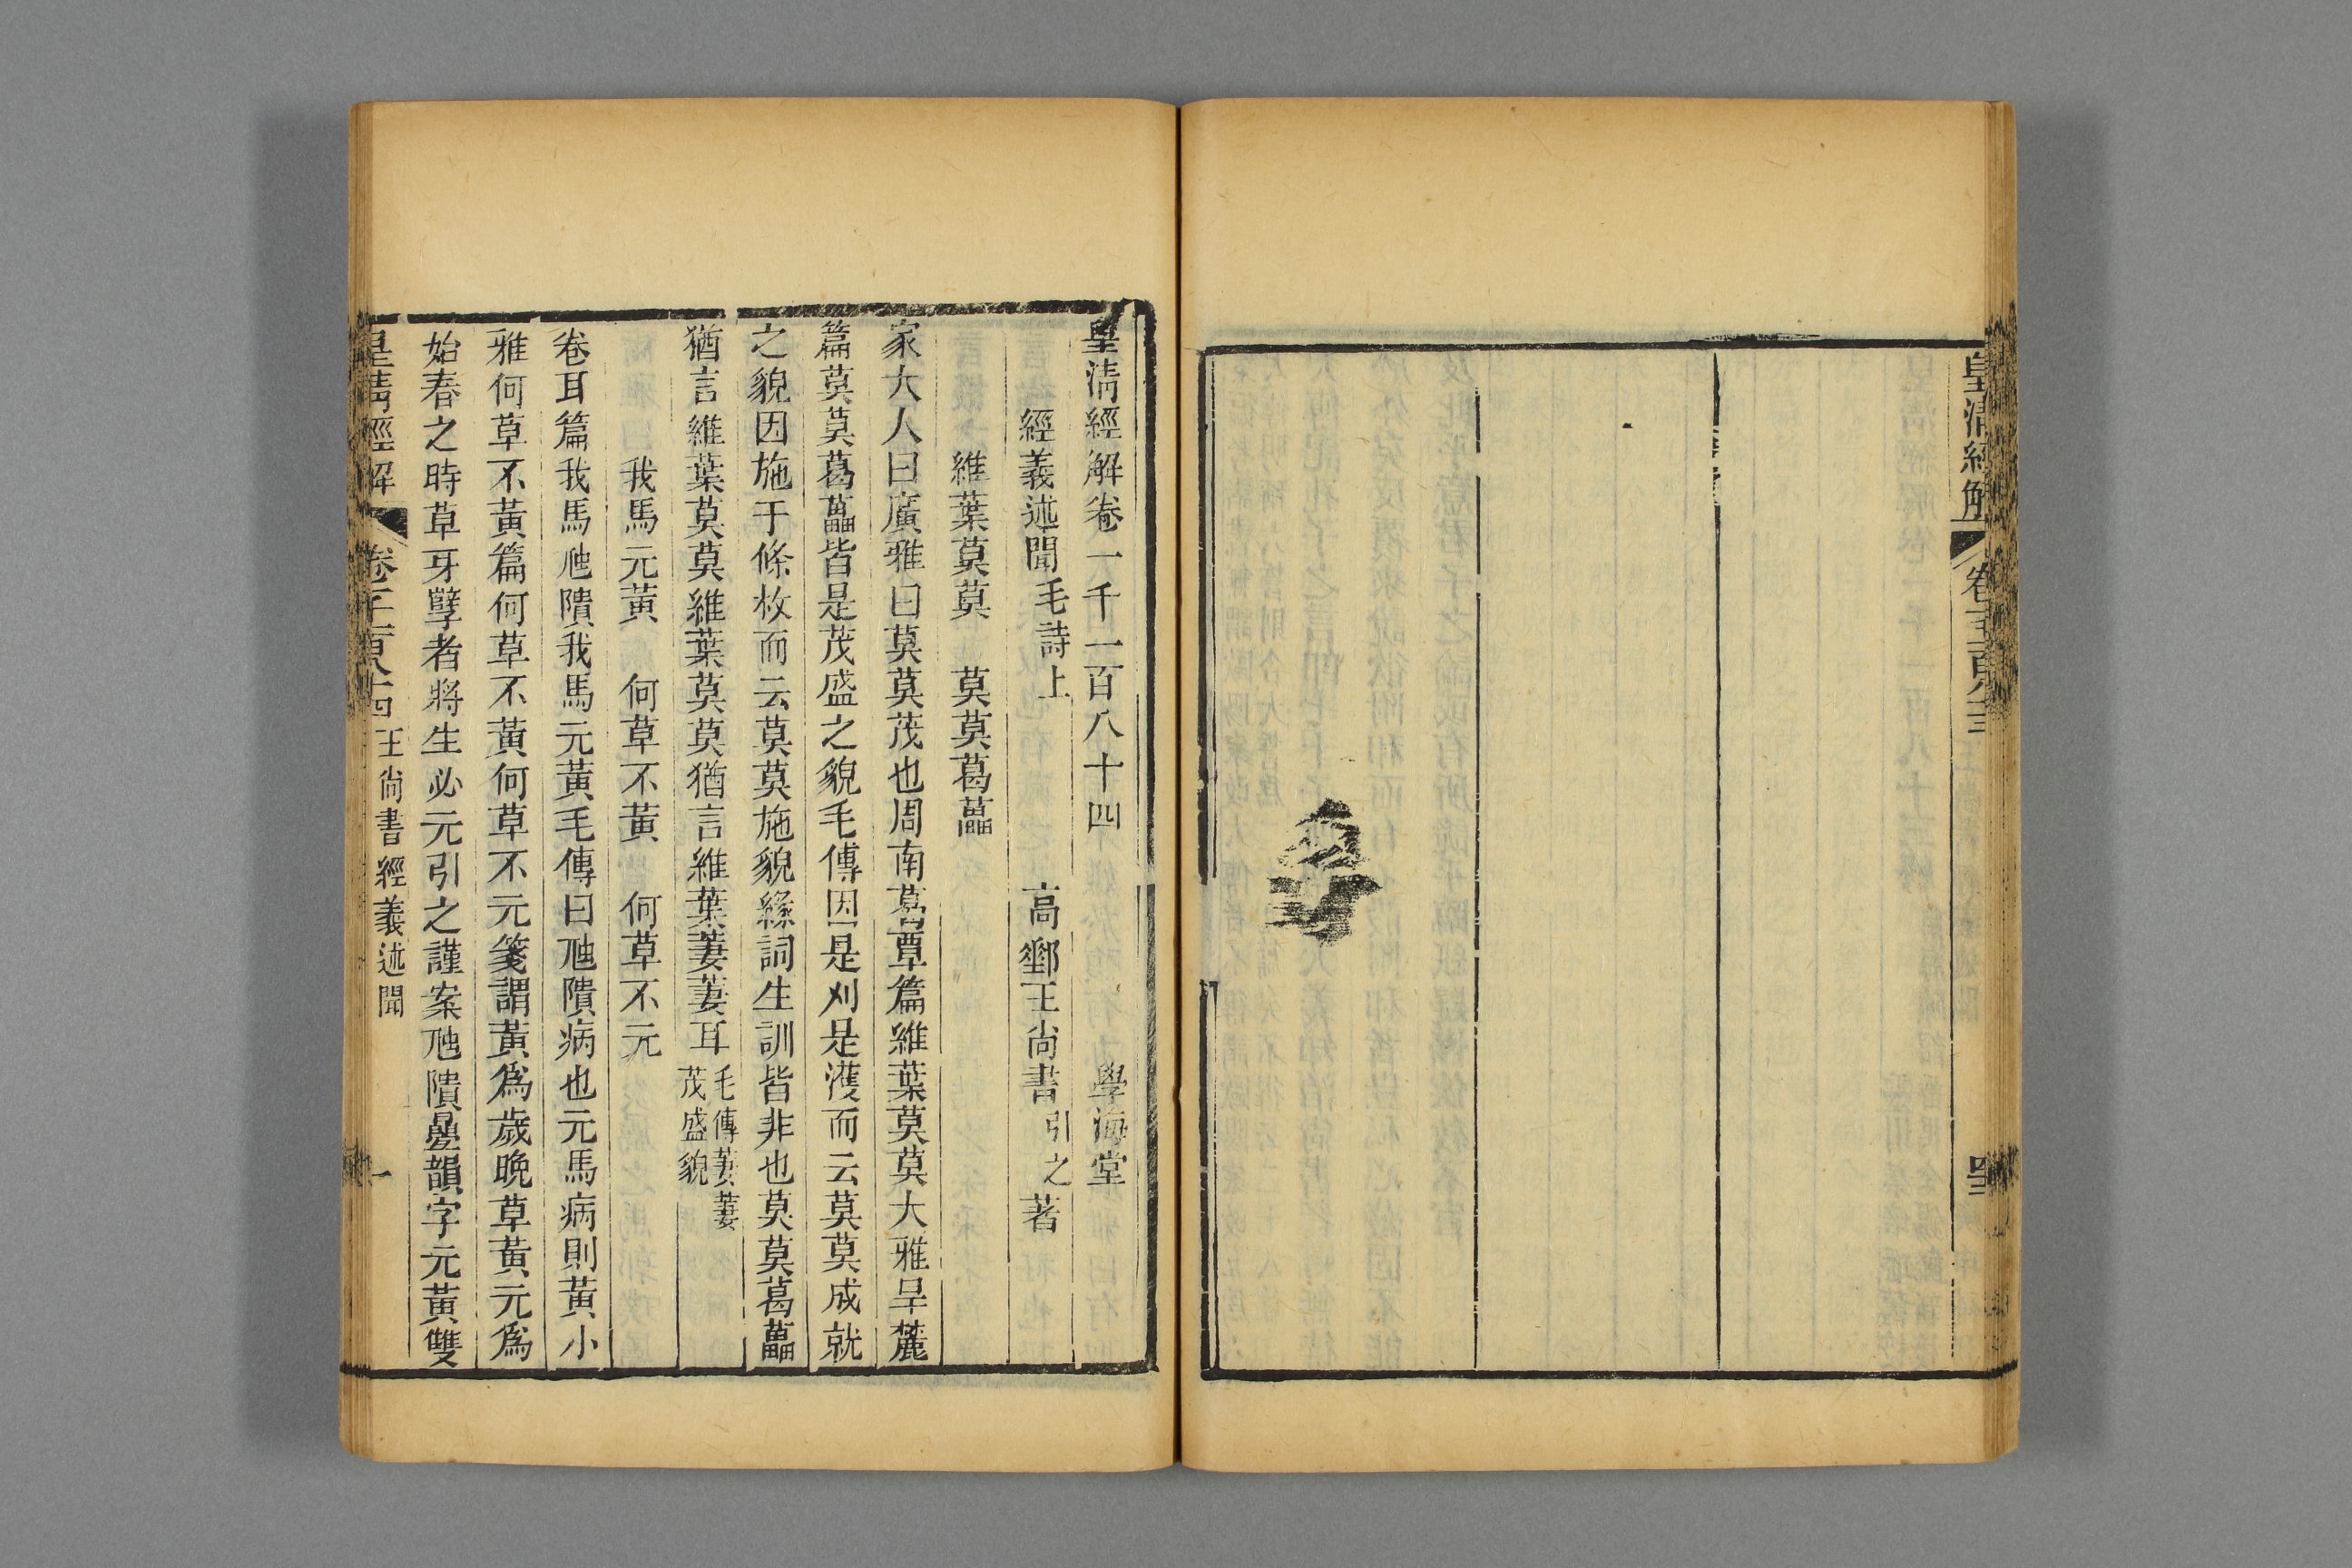 皇清經解
皇清經解卷一千一百八十四
學海堂
經義述聞
毛詩上
高郵王尚書
引之
著
維葉莫莫　莫莫葛藟
家大人曰廣雅曰莫莫茂也周南葛覃篇維葉莫莫大雅旱麓
篇莫莫葛藟皆是茂盛之貌毛傳因是刈是濩而云莫莫成就
之貌因施于條枚而云莫莫施貌緣詞生訓皆非也莫莫葛藟
猶言維葉莫莫維葉莫莫猶言維葉萋萋耳
毛傳萋萋
茂盛貌
我馬元黃　何草不黃　何草不元
卷耳篇我馬虺隤我馬元黃毛傳曰虺隤病也元馬病則黃小
雅何草不黃篇何草不黃何草不元箋謂黃為歲晚草黃元為
始春之時草牙孼者將生必元引之謹案虺隤疊韻字元黃雙
皇清經解
卷千一百八十四
王尚書經義述聞
一